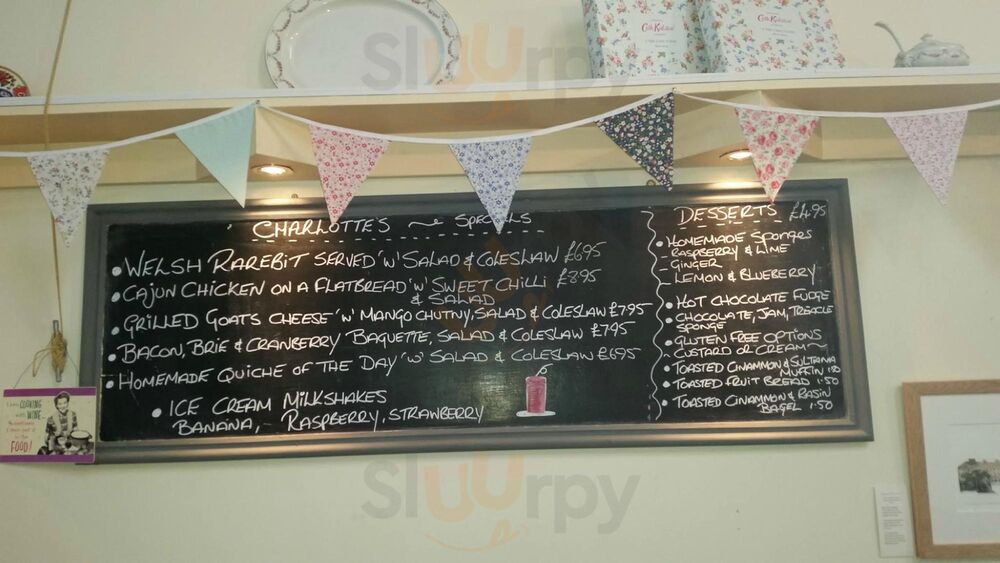 Cath Kidston
Cath Kidston
Slurpy
CHARLOTTE'S ~ SPECIALS
• WELSH RAREBIT SERVED 'W' SALAD & COLESLAW £6.95
• CAJUN CHICKEN ON A FLATBREAD 'W' SWEET CHILLI £8.95
& SALAD
• GRILLED GOATS CHEESE 'W' MANGO CHUTNY, SALAD & COLESLAW £7.95
• BACON, BRIE & CRANBERRY BAGUETTE, SALAD & COLESLAW £7.95
• HOMEMADE QUICHE OF THE DAY 'W' SALAD & COLESLAW £6.95
• ICE CREAM MILKSHAKES
BANANA, RASPBERRY, STRAWBERRY
DESSERTS £4.95
• HOMEMADE SPONGES
- RASPBERRY & LIME
- GINGER
- LEMON & BLUEBERRY
• HOT CHOCOLATE FUDGE
CHOCOLATE, JAM, TREACLE
SPONGE
• GLUTEN FREE OPTIONS
~ CUSTARD OR CREAM ~
• TOASTED CINNAMON & SULTANA
MUFFIN 1.80
• TOASTED FRUIT BREAD 1.50
• TOASTED CINNAMON & RASIN
BAGEL 1.50
I love COOKING
with WINE
FOOD!
Slurpy